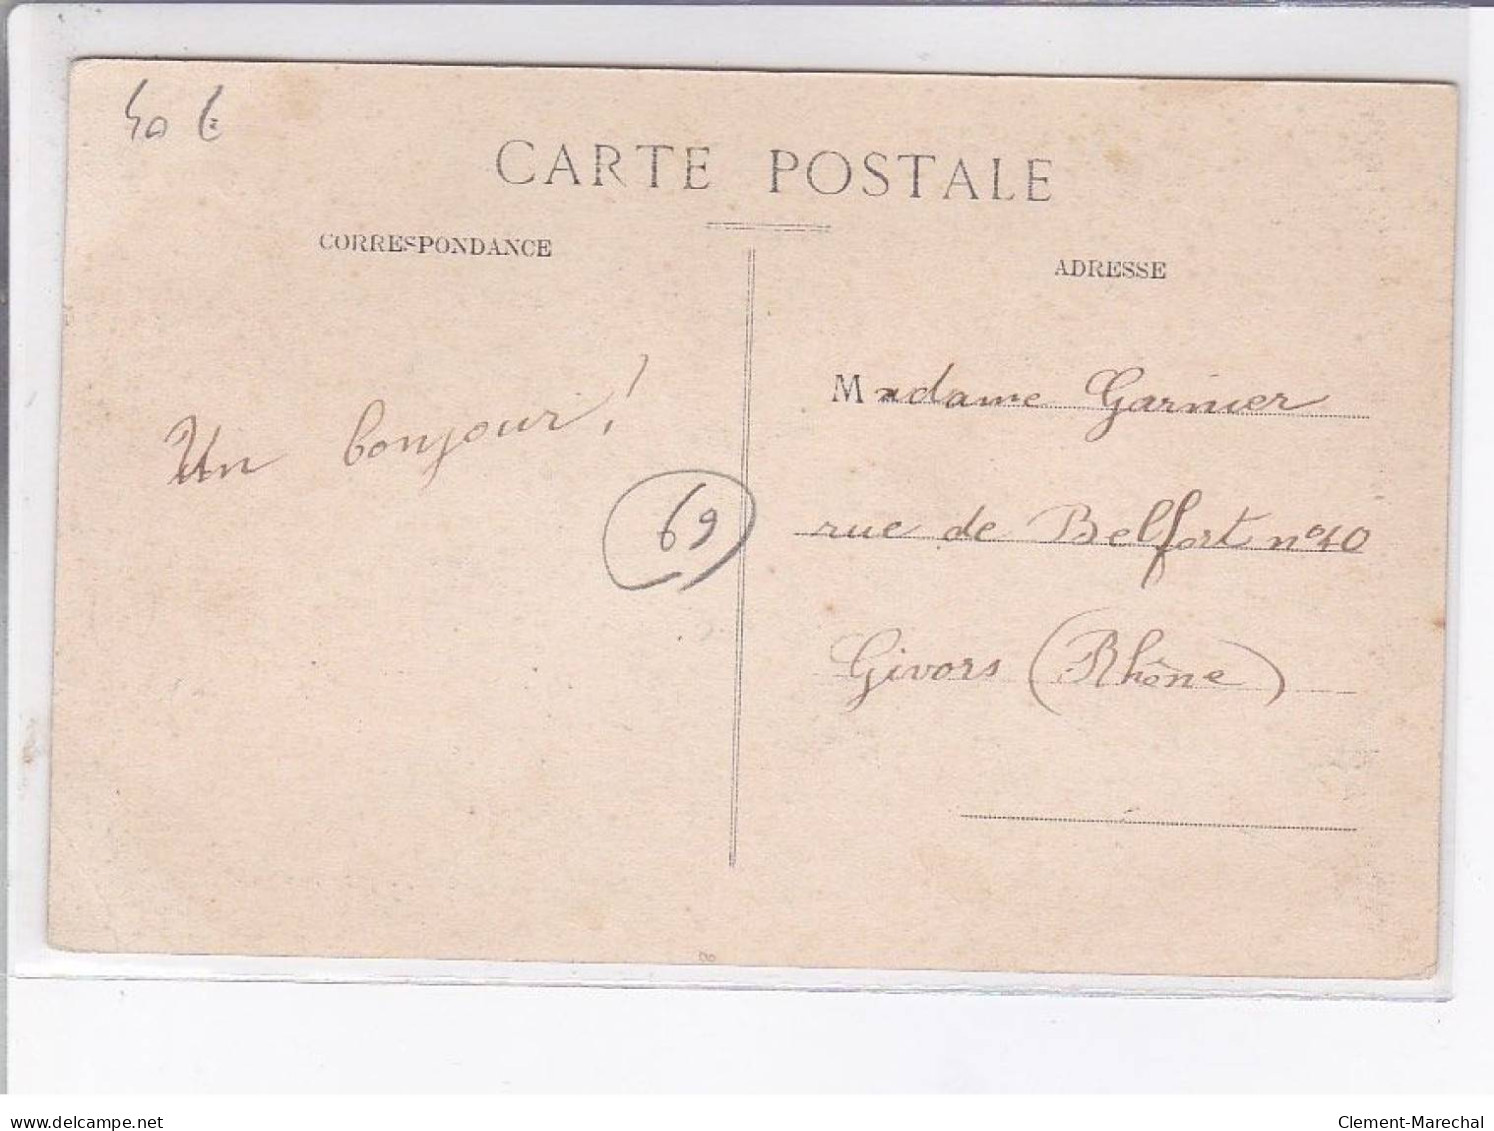 40 €
CARTE POSTALE
CORRESPONDANCE
ADRESSE
Un bonjour!
69
Madame Garnier
rue de Belfort n° 40
Givors (Rhône)
www.delcampe.net
Clement-Marechal